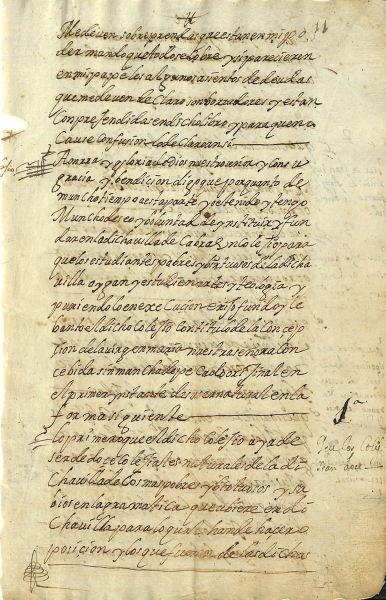 11
Me deven sobre prendas que estan en mi po
der mando que todo se cobre y si parecieren
en mis papeles algunos asientos de deudas
que me deven declaro son berdaderos y estan
Conprehendidas en dicho libro y para que no
Cause confusion lo declaro ansi
A onrra y gloria de Dios nuestro señor y con su
gracia y bendicion digo que por quanto de
muncho tiempo a esta parte y o e tenido y tengo
Muncho deseo y voluntad de ynstituir y fun
dar en la dicha villa de Cabra un colesio para
que los estudiantes pobres y birtuosos de la dicha
villa oygan y estudien artes y teologia y
puniendolo en execucion erijo fundo y le
banto el dicho colesio con titulo de la Concep
cion de la virgen maria nuestra señora con
cebida sin mancha de pecado orijinal en
el primer ynstante de su ser natural en la
forma siguiente
Lo primero que el dicho Colesio aya de
ser de doce colesiales naturales de la di
Cha villa de los mas pobres y birtuosos y sa
bios en la pramatica que ubiere en la di
Cha villa para lo qual han de hacer o
posicion y los que fueren de las dichas
1ª